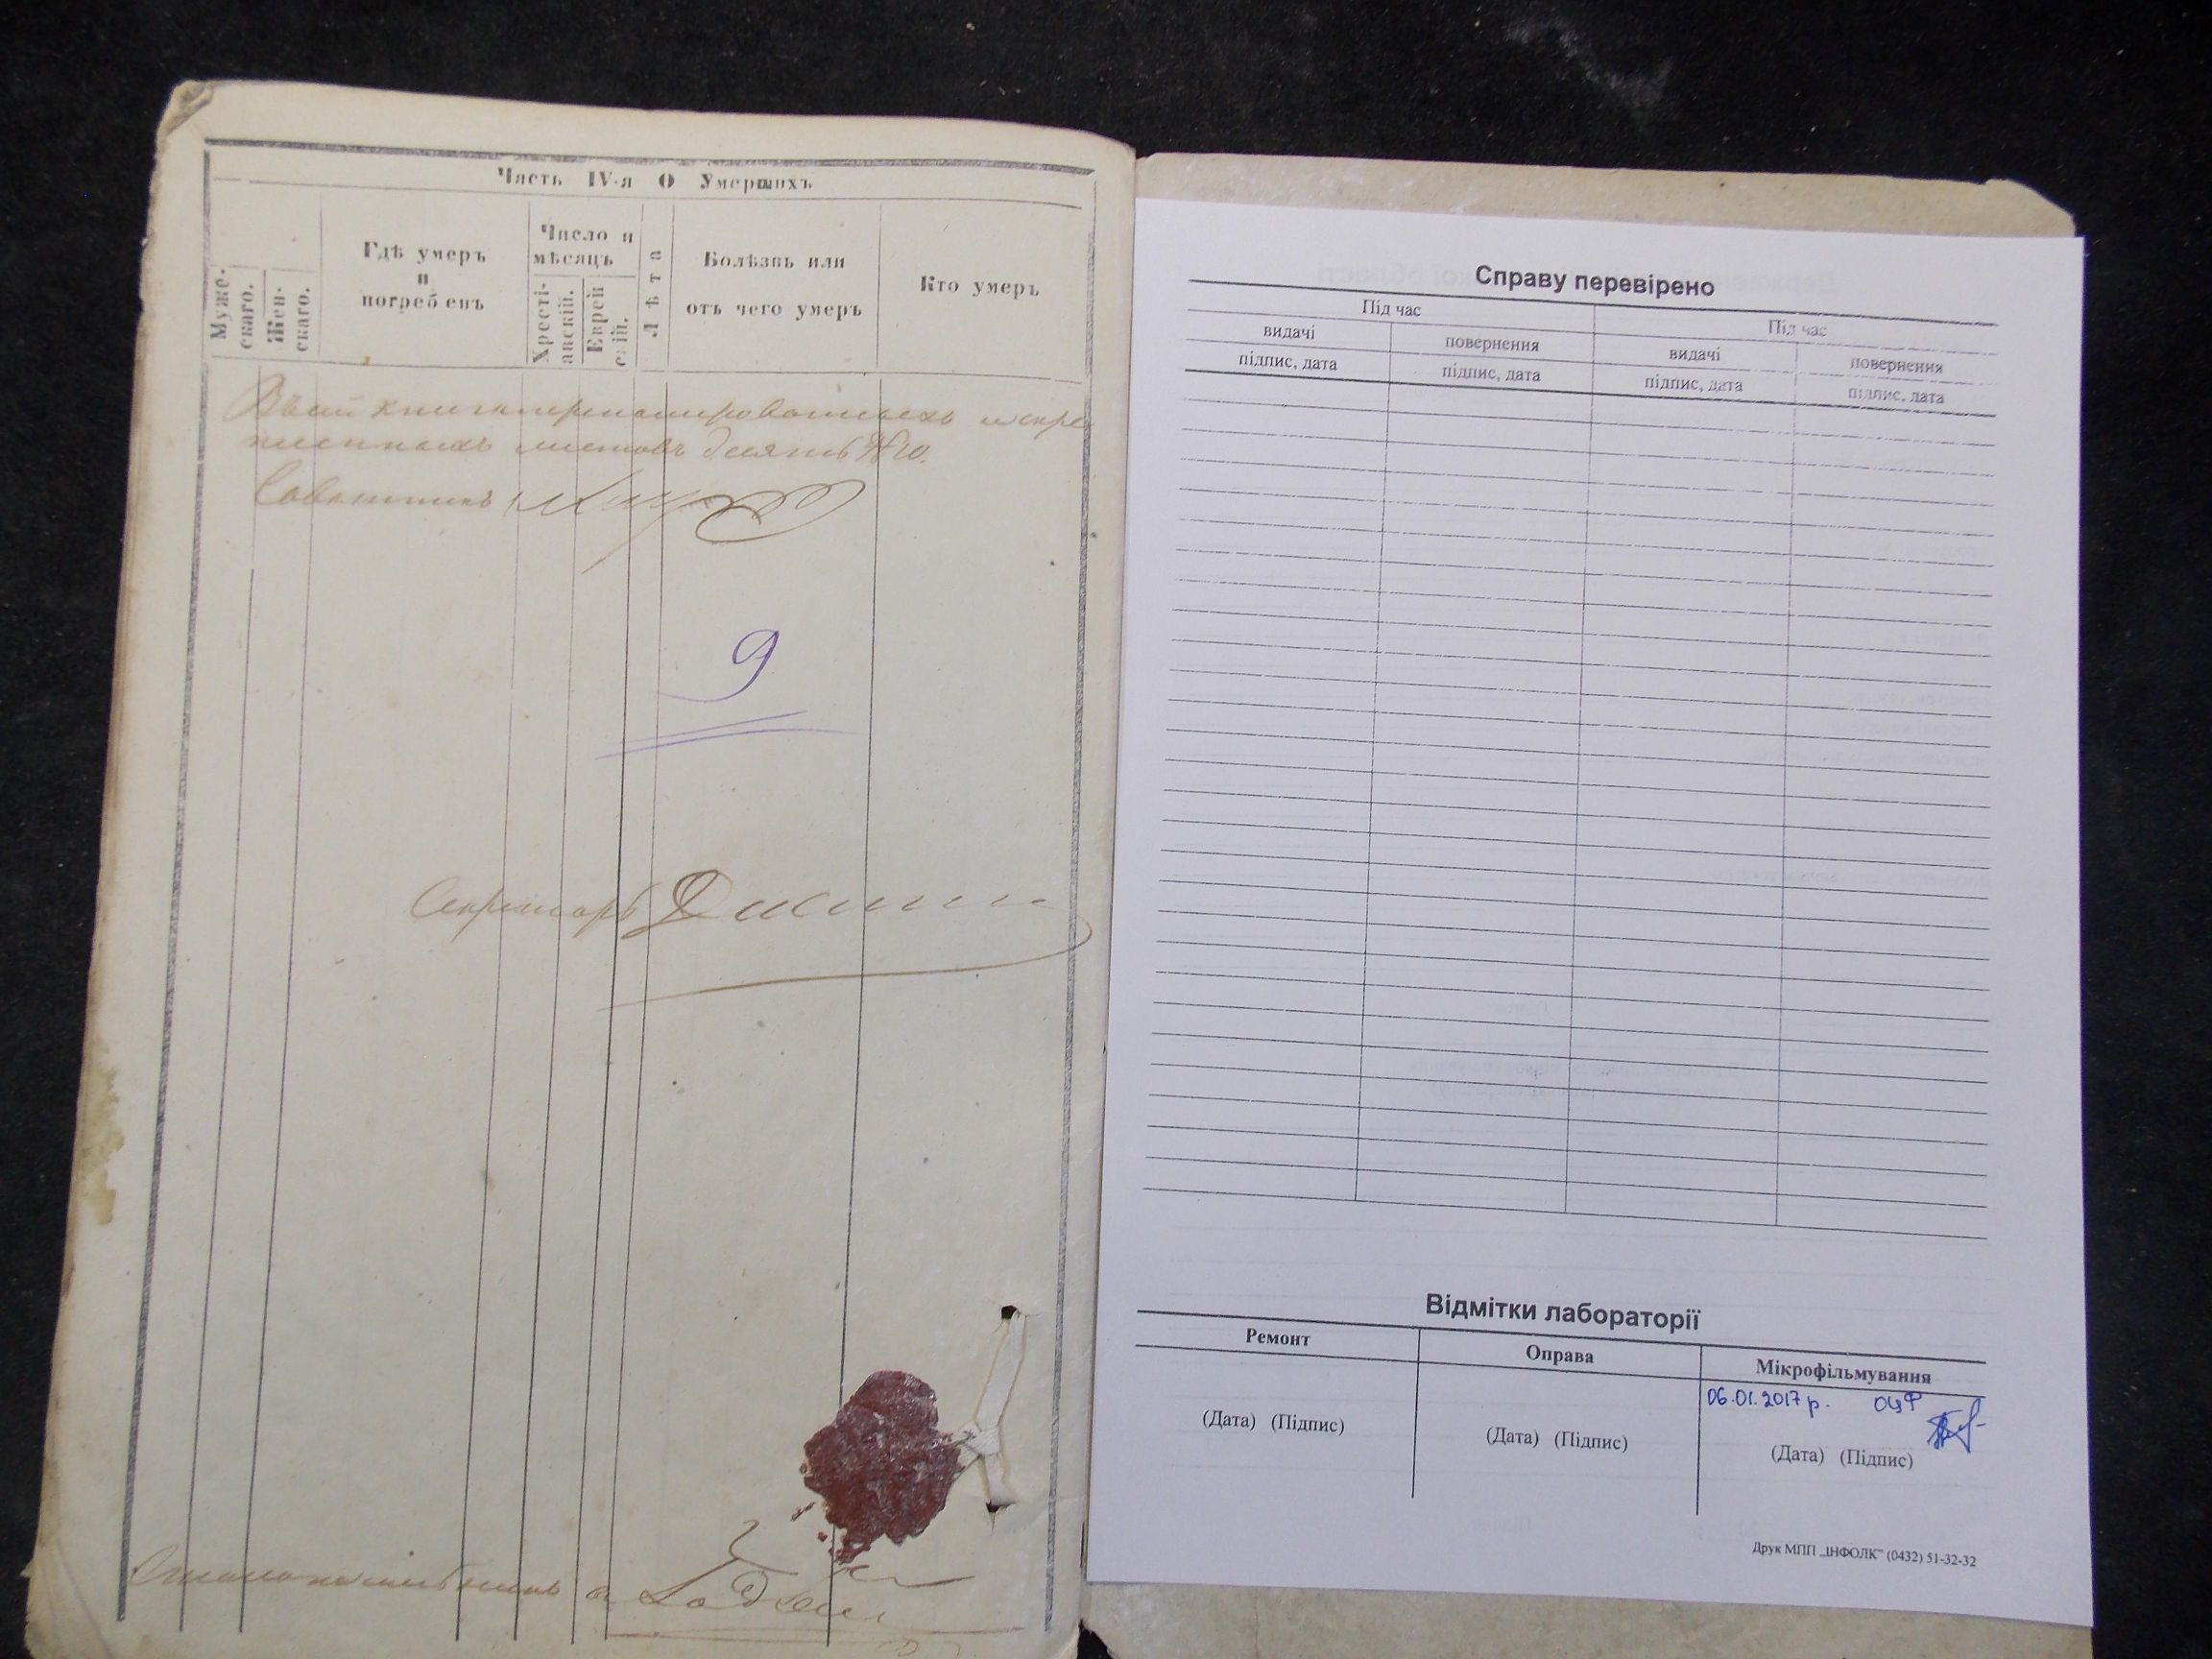 Часть IV-я О Умершихъ
Муже-
скаго.
Жен-
скаго.
Гдѣ умеръ
и
погребенъ
Число и
мѣсяцъ
Христі-
анскій.
Еврей
скій.
Лѣта
Болѣзнь или
отъ чего умеръ
Кто умеръ
Въ сей книге пронумерованныхъ и скре
пленныхъ листовъ десять № 10.
Советникъ
9
Секретарь
Столоначальникъ
Справу перевірено
Під час
Під час
видачі
повернення
видачі
повернення
підпис, дата
підпис, дата
підпис, дата
підпис, дата
Відмітки лабораторії
Ремонт
Оправа
Мікрофільмування
06.01.2017 р. ОЦФ
(Дата) (Підпис)
(Дата) (Підпис)
(Дата) (Підпис)
Друк МПП „ІНФОЛК" (0432) 51-32-32